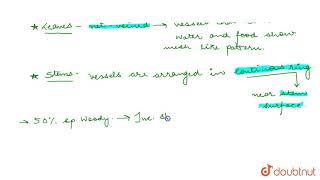 * Leaves - net veined → vessels that
water and food show
mesh like pattern.
* Stems - vessels are arranged in continuous ring
near stem
surface
→ 50% sp. Woody. → Inc. s
doubtnut